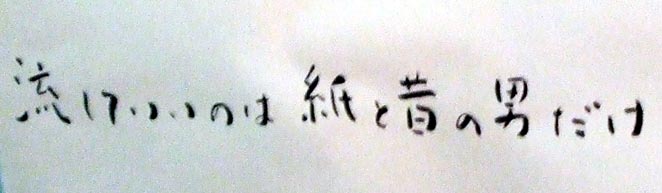 流していいのは紙と昔の男だけ